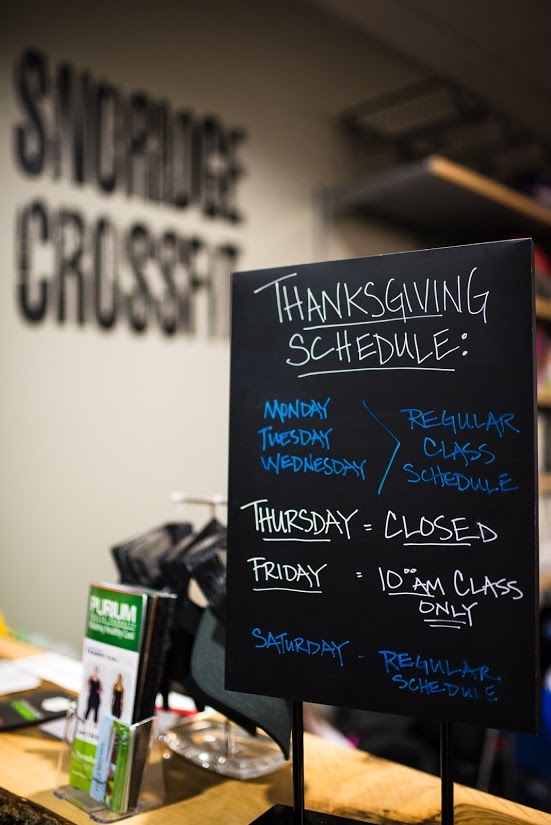 SNORIDGE
CROSSFIT
THANKSGIVING
SCHEDULE:
MONDAY
TUESDAY
WEDNESDAY
REGULAR
CLASS
SCHEDULE
THURSDAY = CLOSED
FRIDAY = 10:00 AM CLASS
ONLY
SATURDAY - REGULAR
SCHEDULE
PURIUM